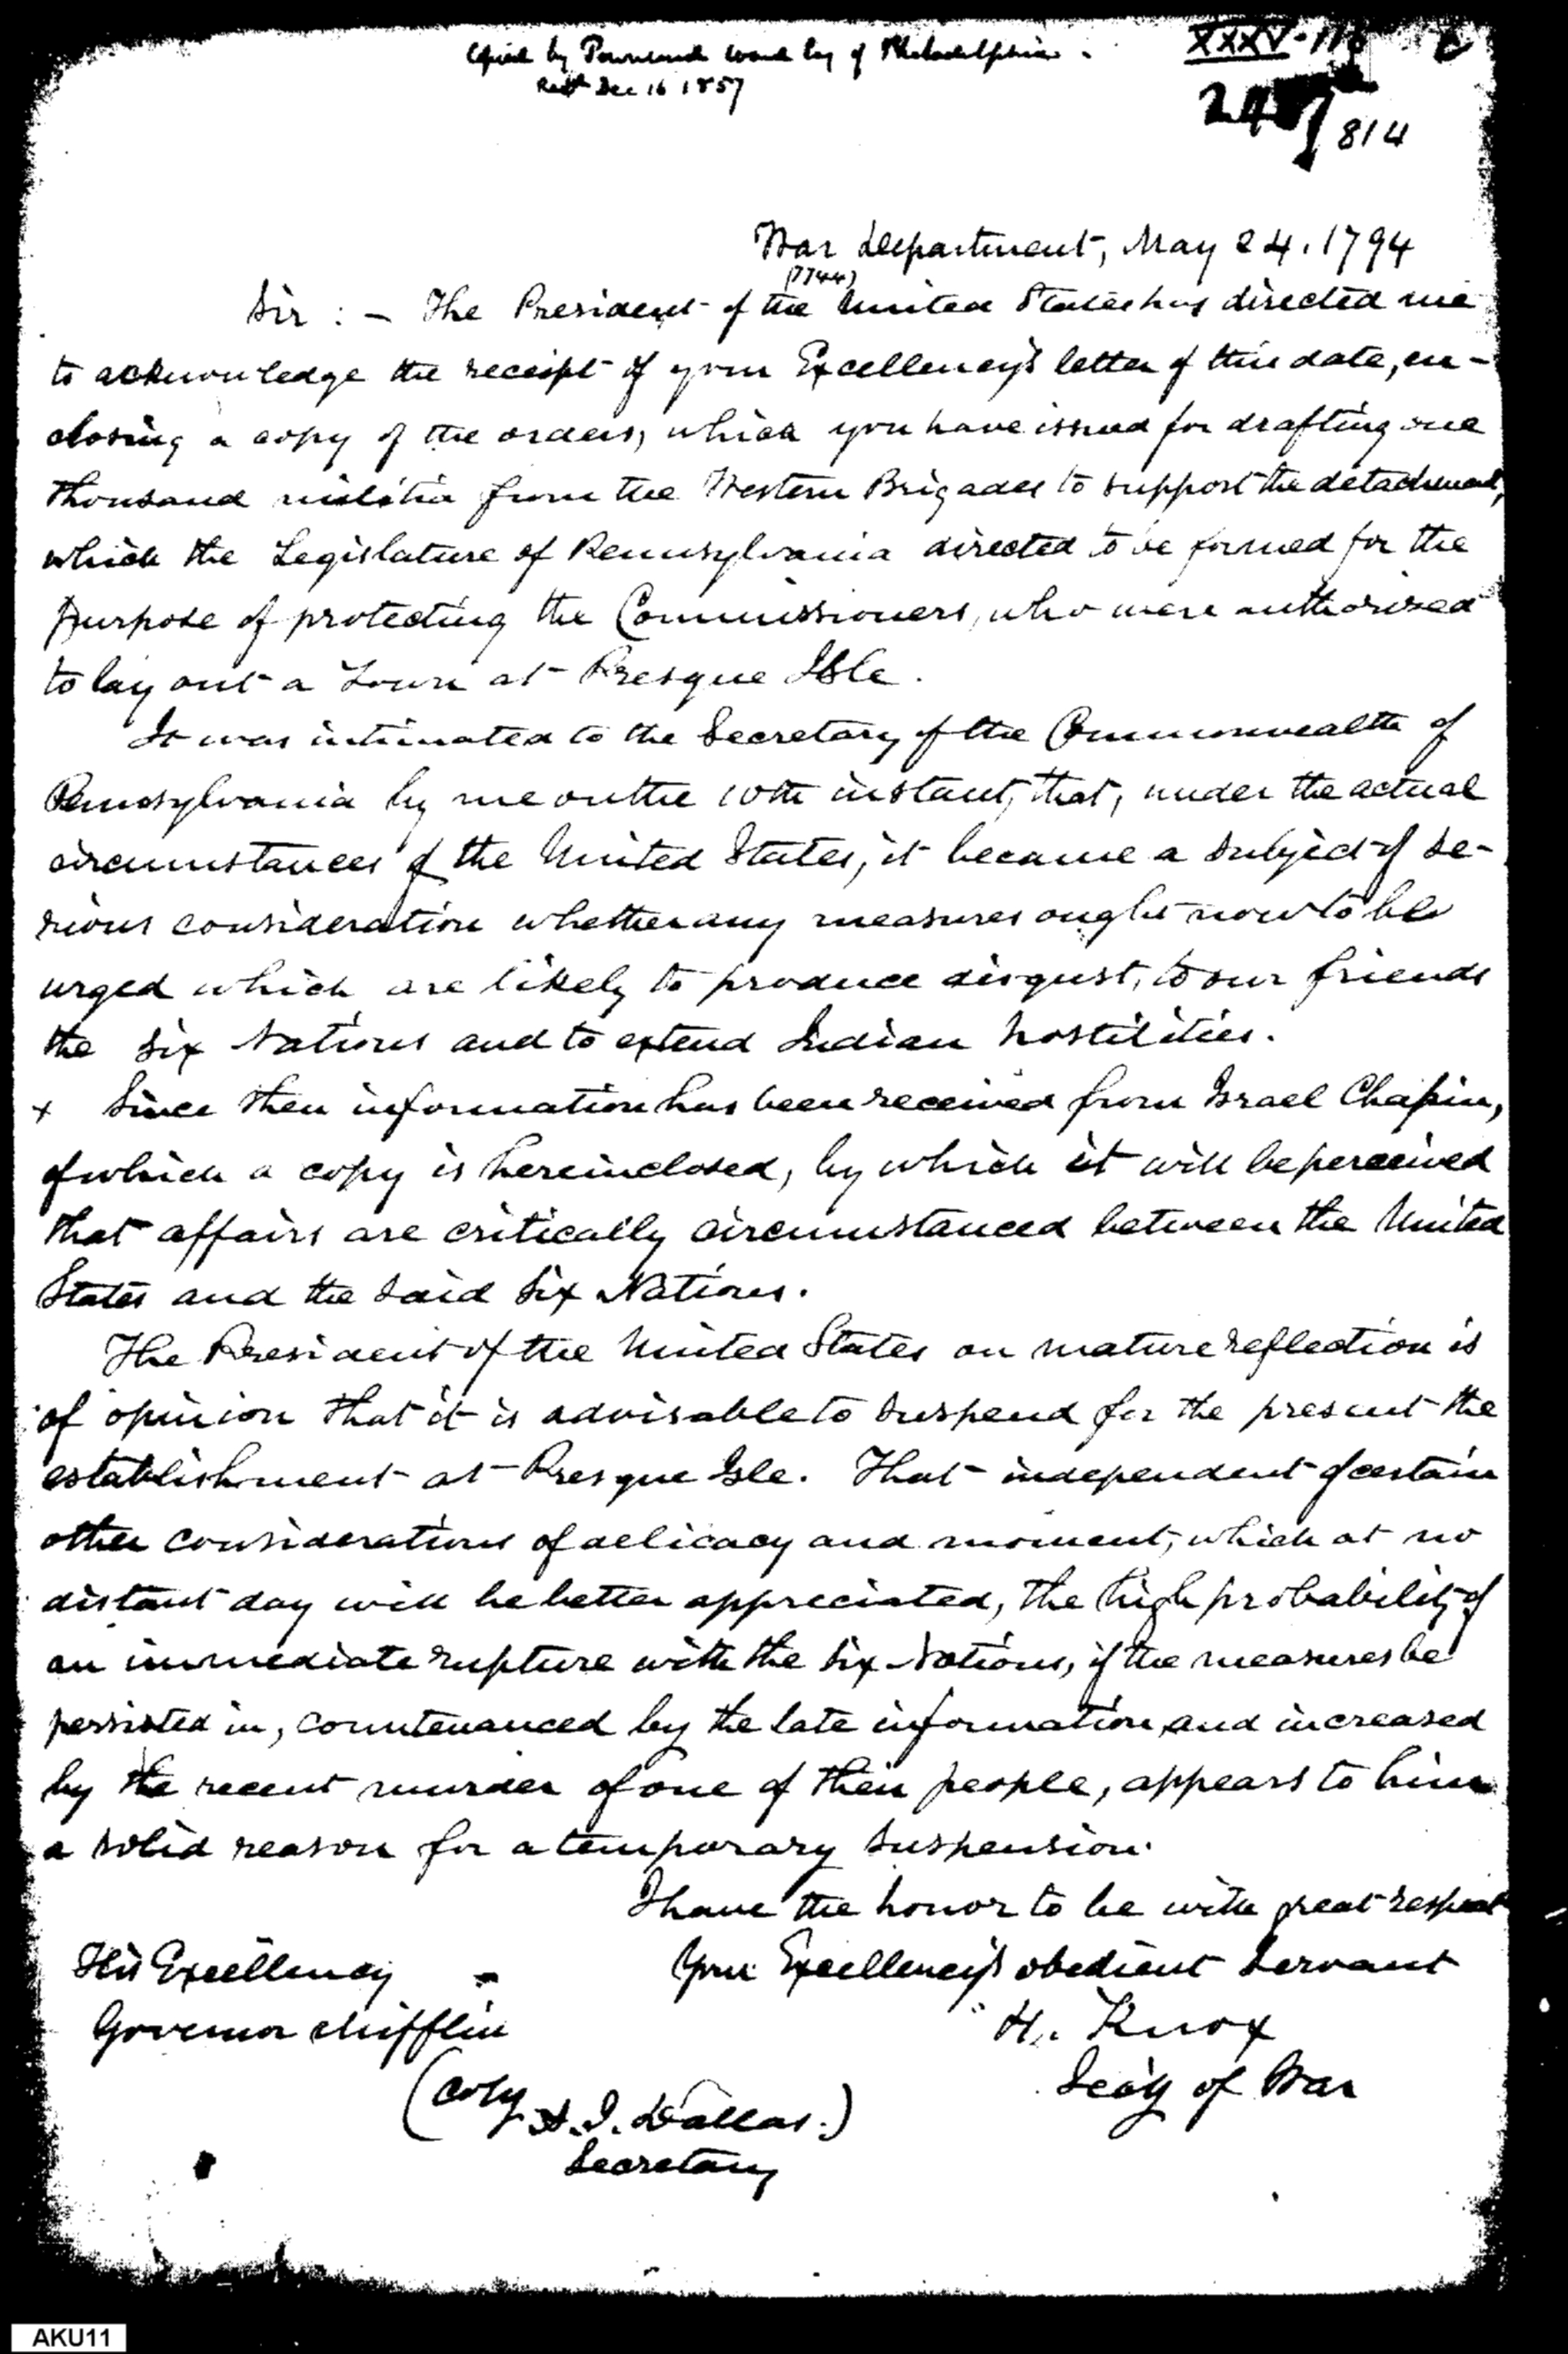 Copied by Townsend Ward Esq of Philadelphia.
Recd Dec 16 1857
XXXV-
814
War Department, May 24. 1794
(1744)
Sir : — The President of the United States has directed me
to acknowledge the receipt of your Excellency's letter of this date, en-
closing a copy of the orders, which you have issued for drafting one
thousand militia from the Western Brigades to support the detachment,
which the Legislature of Pennsylvania directed to be formed for the
purpose of protecting the Commissioners, who were authorised
to lay out a Town at Presque Isle.
It was intimated to the Secretary of the Commonwealth of
Pennsylvania by me on the 10th instant, that, under the actual
circumstances of the United States, it became a subject of se-
rious consideration whether any measures ought now to be
urged which are likely to produce disgust, to our friends
the Six Nations and to extend Indian hostilities.
x Since then information has been received from Israel Chapin,
of which a copy is herein closed, by which it will be perceived
that affairs are critically circumstanced between the United
States and the said Six Nations.
The President of the United States on mature reflection is
of opinion that it is advisable to suspend for the present the
establishment at Presque Isle. That independent of certain
other considerations of delicacy and moment, which at no
distant day will be better appreciated, the high probability of
an immediate rupture with the Six Nations, if the measures be
persisted in, countenanced by the late information, and increased
by the recent murder of one of their people, appears to him
a solid reason for a temporary suspension.
I have the honor to be with great respect
Your Excellency's obedient Servant
H. Knox
Sec'y of War
His Excellency
Governor Mifflin
(Copy A. J. Dallas.)
Secretary
AKU11